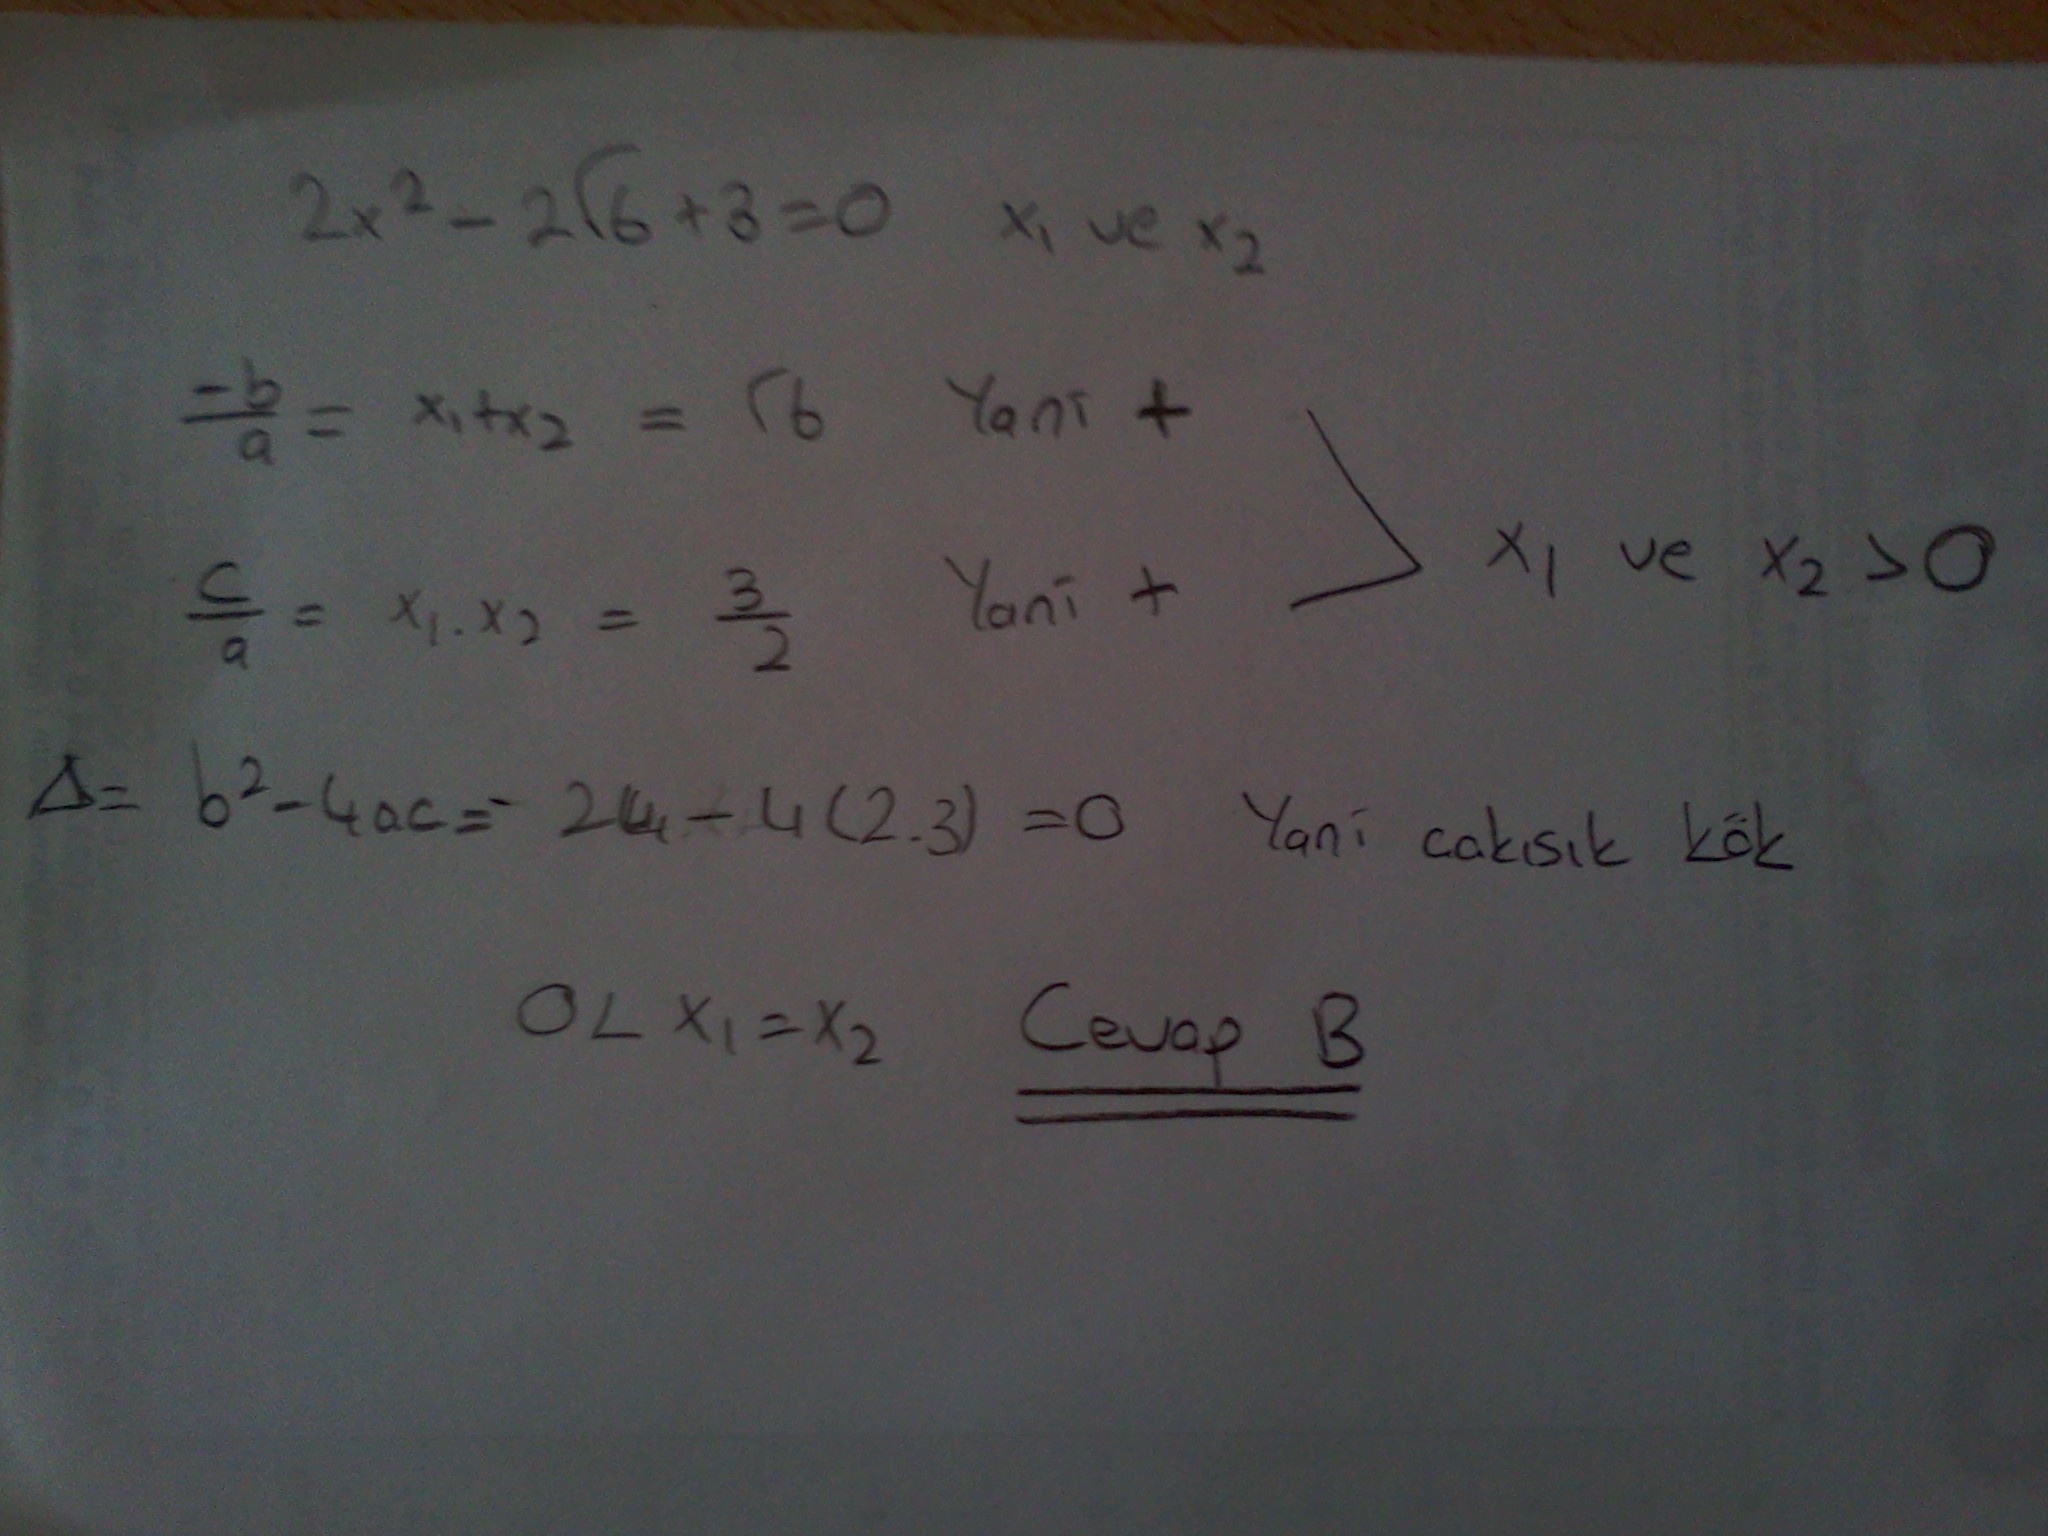 2x² - 2√6 + 3 = 0 x₁ ve x₂
-b/a = x₁+x₂ = √6 Yani +
x₁ ve x₂ > 0
c/a = x₁.x₂ = 3/2 Yani +
Δ= b²-4ac = 24 - 4(2.3) = 0 Yani cakısık kök
0 < x₁ = x₂ Cevap B